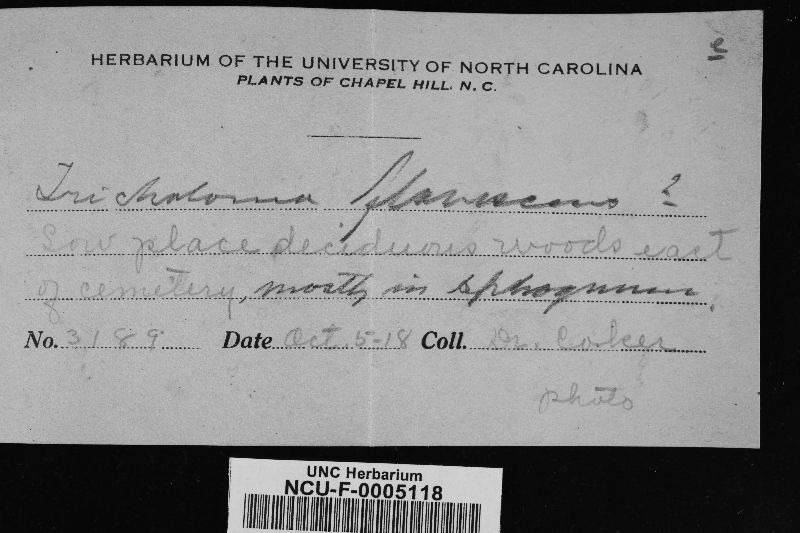 e
HERBARIUM OF THE UNIVERSITY OF NORTH CAROLINA
PLANTS OF CHAPEL HILL, N. C.
Tricholoma flavescens ?
Low place deciduous woods east
of cemetery, mostly in sphagnum.
No. 3189 Date Oct. 5-18 Coll. Dr. Coker
photo
UNC Herbarium
NCU-F-0005118